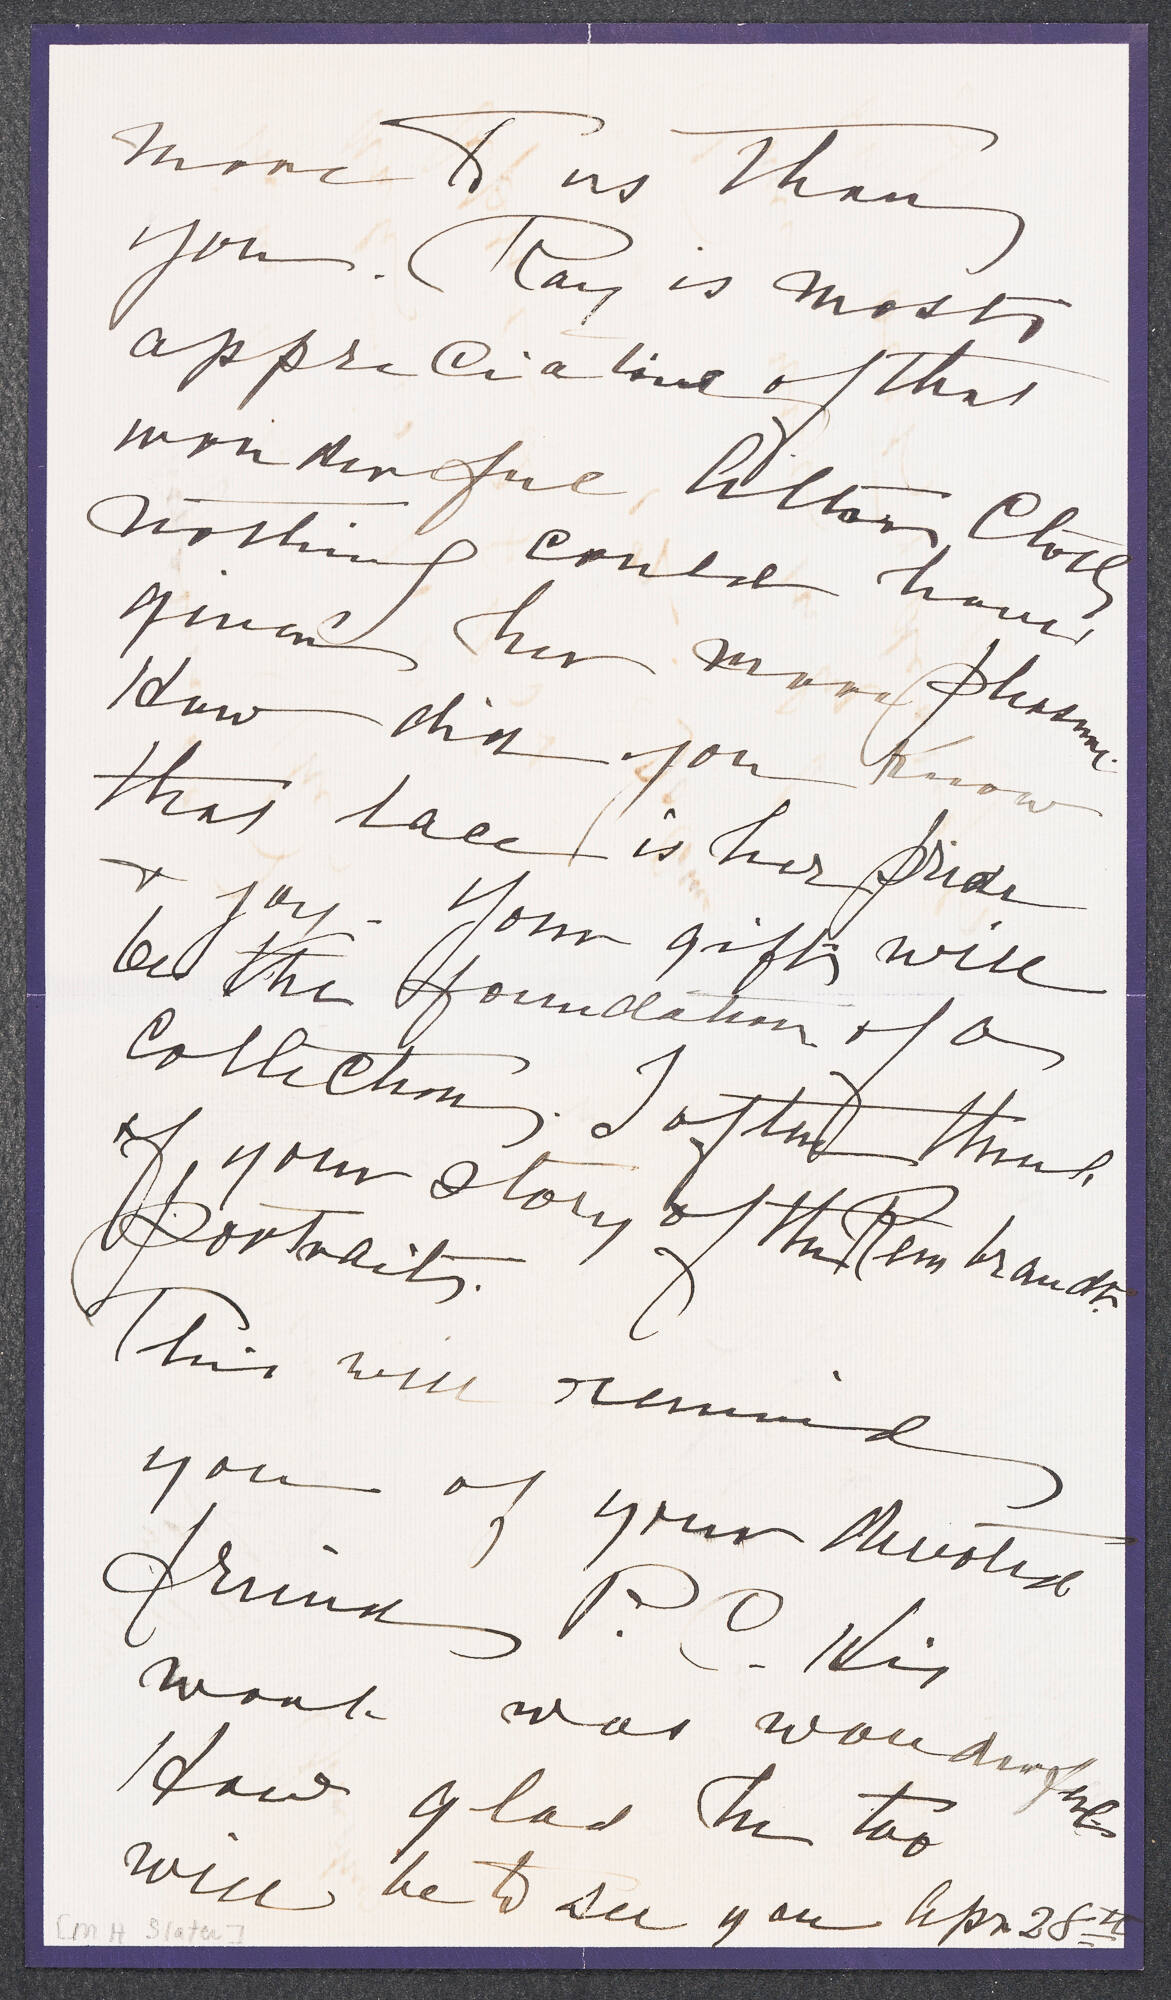 more to us than
you. Ray is most
appreciative of that
wonderful Altar Cloth
nothing could have
given her more pleasure.
How did you know
that lace is her pride
& joy - Your gift will
be the foundation of a
collection. I often think
of your story of the Rembrandt
portraits.
This will remind
you of your devoted
friend P. C. His
work was wonderful
How glad he too
will be to see you Apr 28th
[M H Slater]